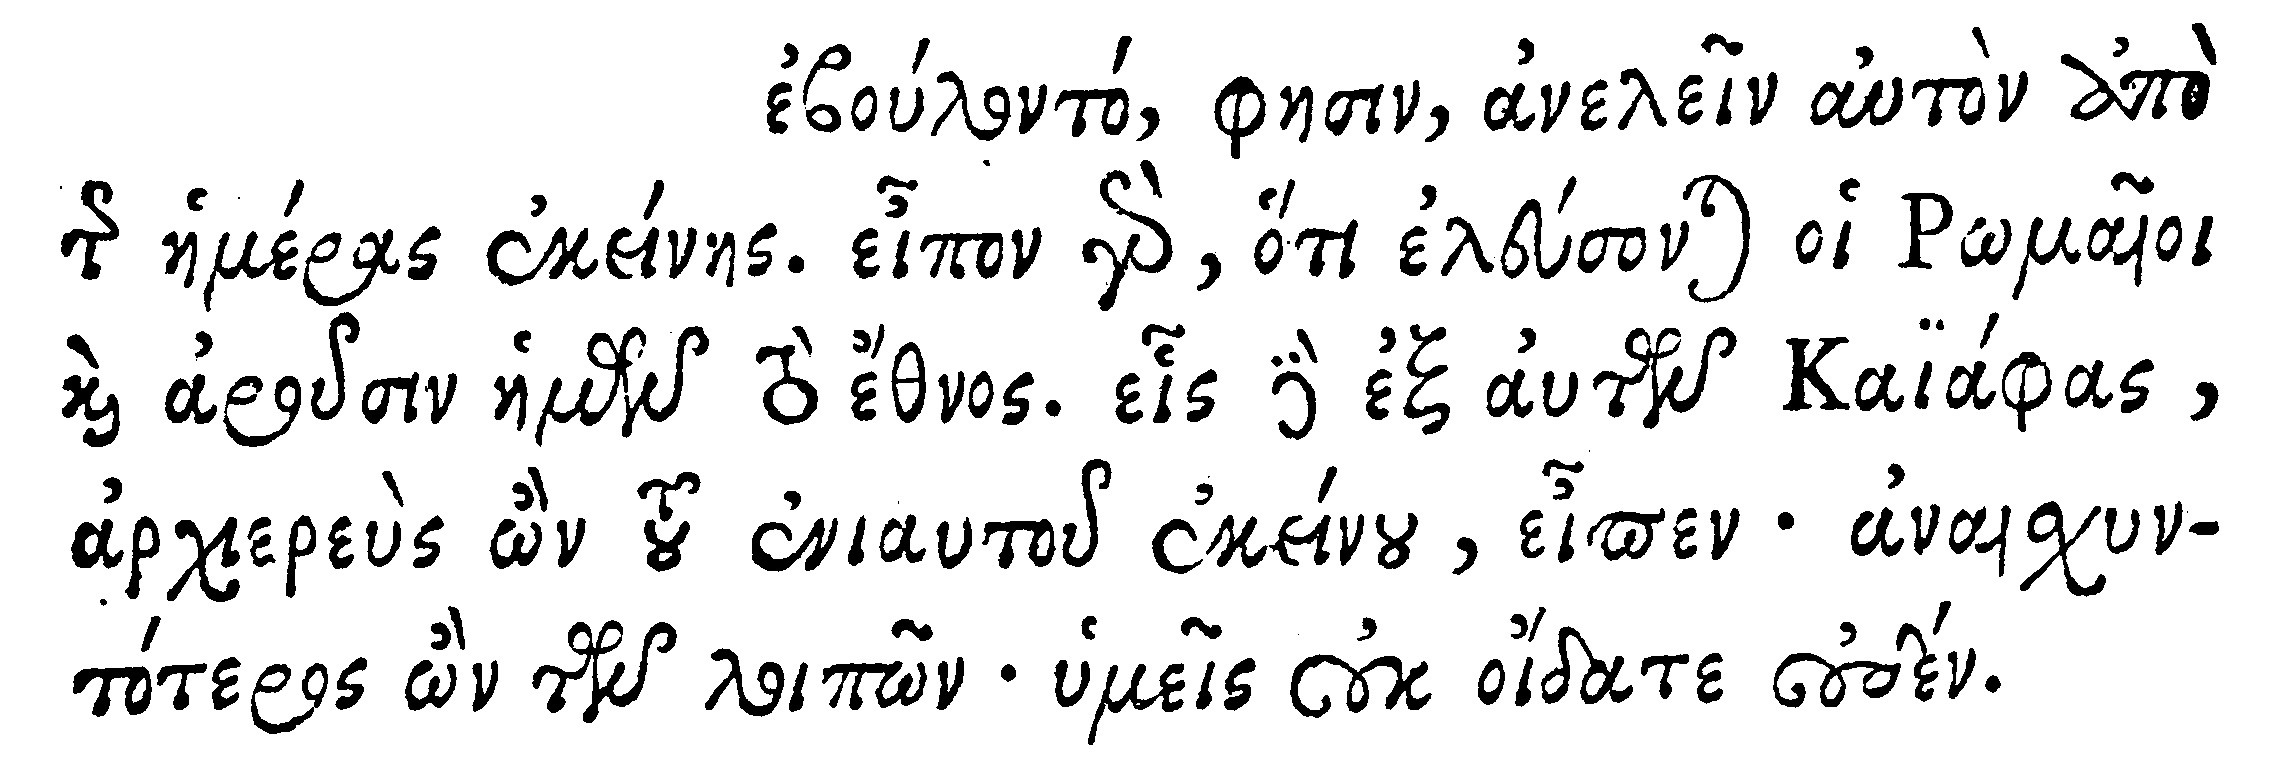 ἐβούλοντό, φησιν, ἀνελεῖν αὐτὸν ἀπὸ
τῆς ἡμέρας ἐκείνης. εἶπον γὰρ, ὅτι ἐλεύσονται οἱ Ῥωμαῖοι
καὶ ἀροῦσιν ἡμῶν τὸ ἔθνος. εἷς δὲ ἐξ αὐτῶν Καϊάφας,
ἀρχιερεὺς ὢν τοῦ ἐνιαυτοῦ ἐκείνου, εἶπεν· ἀναισχυν-
τότερος ὢν τῶν λοιπῶν· ὑμεῖς οὐκ οἴδατε οὐδέν.